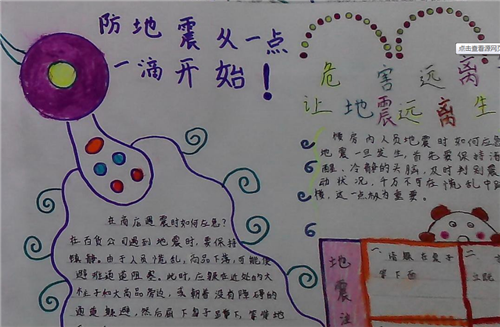 防地震从一点
一滴开始！
点击查看源网页
危害远离
让地震远离生
楼房内人员地震时如何应急？
地震一旦发生，首先要保持清
醒、冷静的头脑，及时判别震
动状况，千万不可在慌乱中
楼，这一点极为重要。
在商店遇震时如何应急？
在百货公司遇到地震时，要保持
镇静。由于人员慌乱，商品下落，可能使
避难通道阻塞。此时，应躲在近处的大
柱子和大商品旁边，或朝着没有障碍的
通道躲避，然后屈下身子蹲下，等待地
地震
一